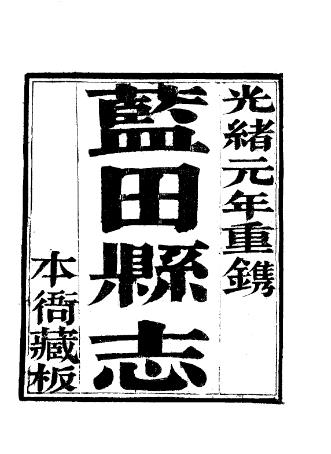 光緒元年重鐫
藍田縣志
本衙藏板